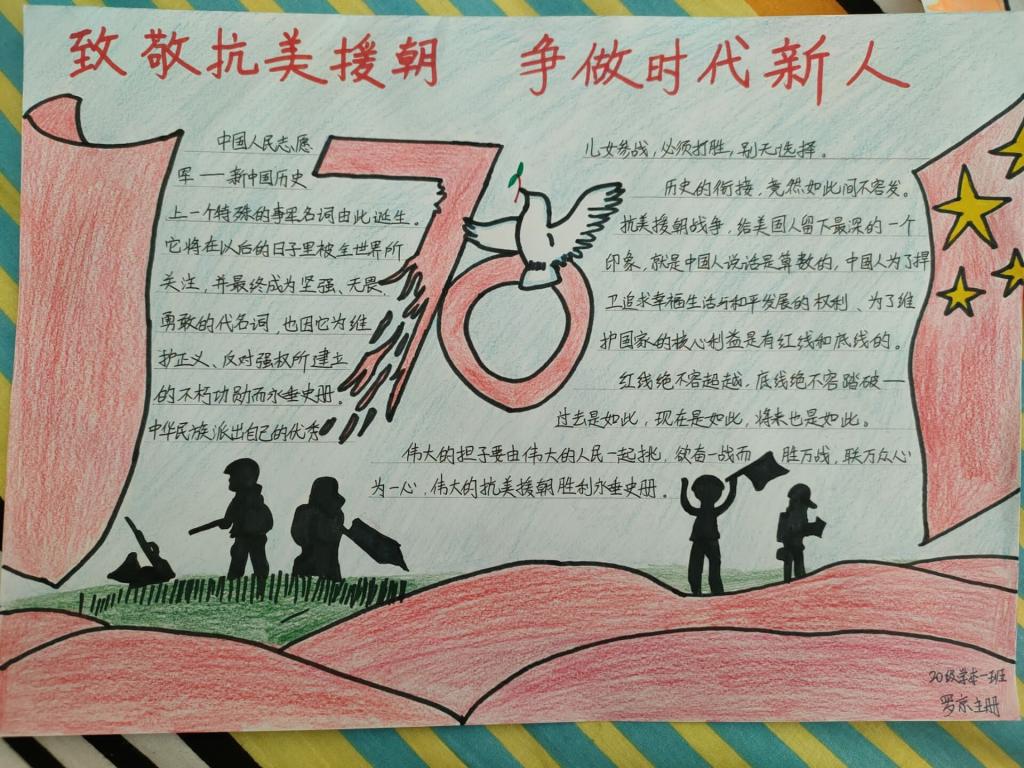 致敬抗美援朝 争做时代新人
中国人民志愿
军——新中国历史
上一个特殊的事军名词由此诞生。
它将在以后的日子里被全世界所
关注,并最终成为坚强、无畏、
勇敢的代名词,也因它为维
护正义、反对强权所建立
的不朽功勋而永垂史册。
中华民族派出自己的优秀
儿女参战,必须打胜,别无选择。
历史的衔接,竟然如此间不容发。
抗美援朝战争,给美国人留下最深的一个
印象,就是中国人说话是算数的,中国人为了捍
卫追求幸福生活与和平发展的权利、为了维
护国家的核心利益是有红线和底线的。
红线绝不容超越,底线绝不容踏破——
过去是如此,现在是如此,将来也是如此。
伟大的担子要由伟大的人民一起挑,欲奋一战而胜万战,联万众心
为一心,伟大的抗美援朝胜利永垂史册。
70
20级学本一班